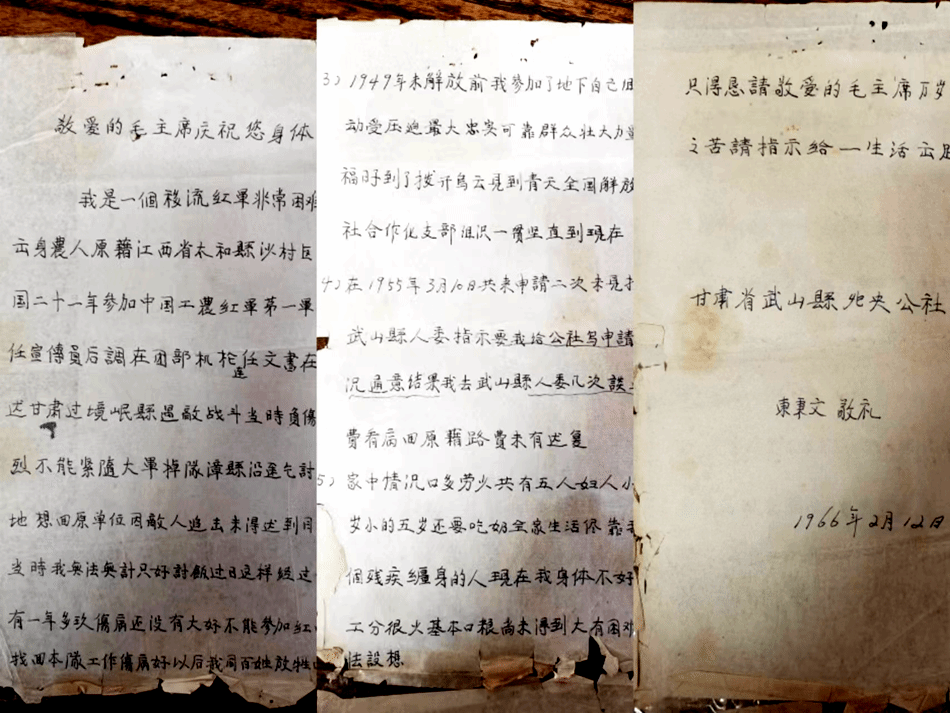 敬爱的毛主席庆祝您身体
我是一個移流红軍非常困难
出身農人原籍江西省太和縣沙村区
国二十一年参加中国工農红軍第一軍
任宣傳員后調在团部机枪连任文書在
达甘肃过境岷縣遇敵战斗当時負傷
烈不能紧隨大軍掉隊漳縣沿途乞討
地想回原单位因敵人追击未得达到目
当時我無法無計只好討飯过日这样经过
有一年多玖傷病还没有大好不能參加红
找回本隊工作傷病好以后我同百姓放牲
3）1949年未解放前我參加了地下自己
动受压迫最大忠实可靠群众壮大力量
福好到了拨开烏云見到青天全国解放
社合作化支部组织一贯坚直到現在
4）在1955年3月10日共来申請二次未見
武山縣人委指示要我给公社写申請
况通意结果我去武山縣人委几次談
費看病回原籍路費未有达复
5）家中情况口多劳火共有五人妇人小
岁小的五岁还要吃奶全家生活依靠
個残疾纏身的人現在我身体不好
工分很火基本口粮尚未得到大有困难
法設想
只得恳請敬爱的毛主席万岁
之苦請指示给一生活出
甘肃省武山縣鸵央公社
東秉文 敬礼
1966年2月12日